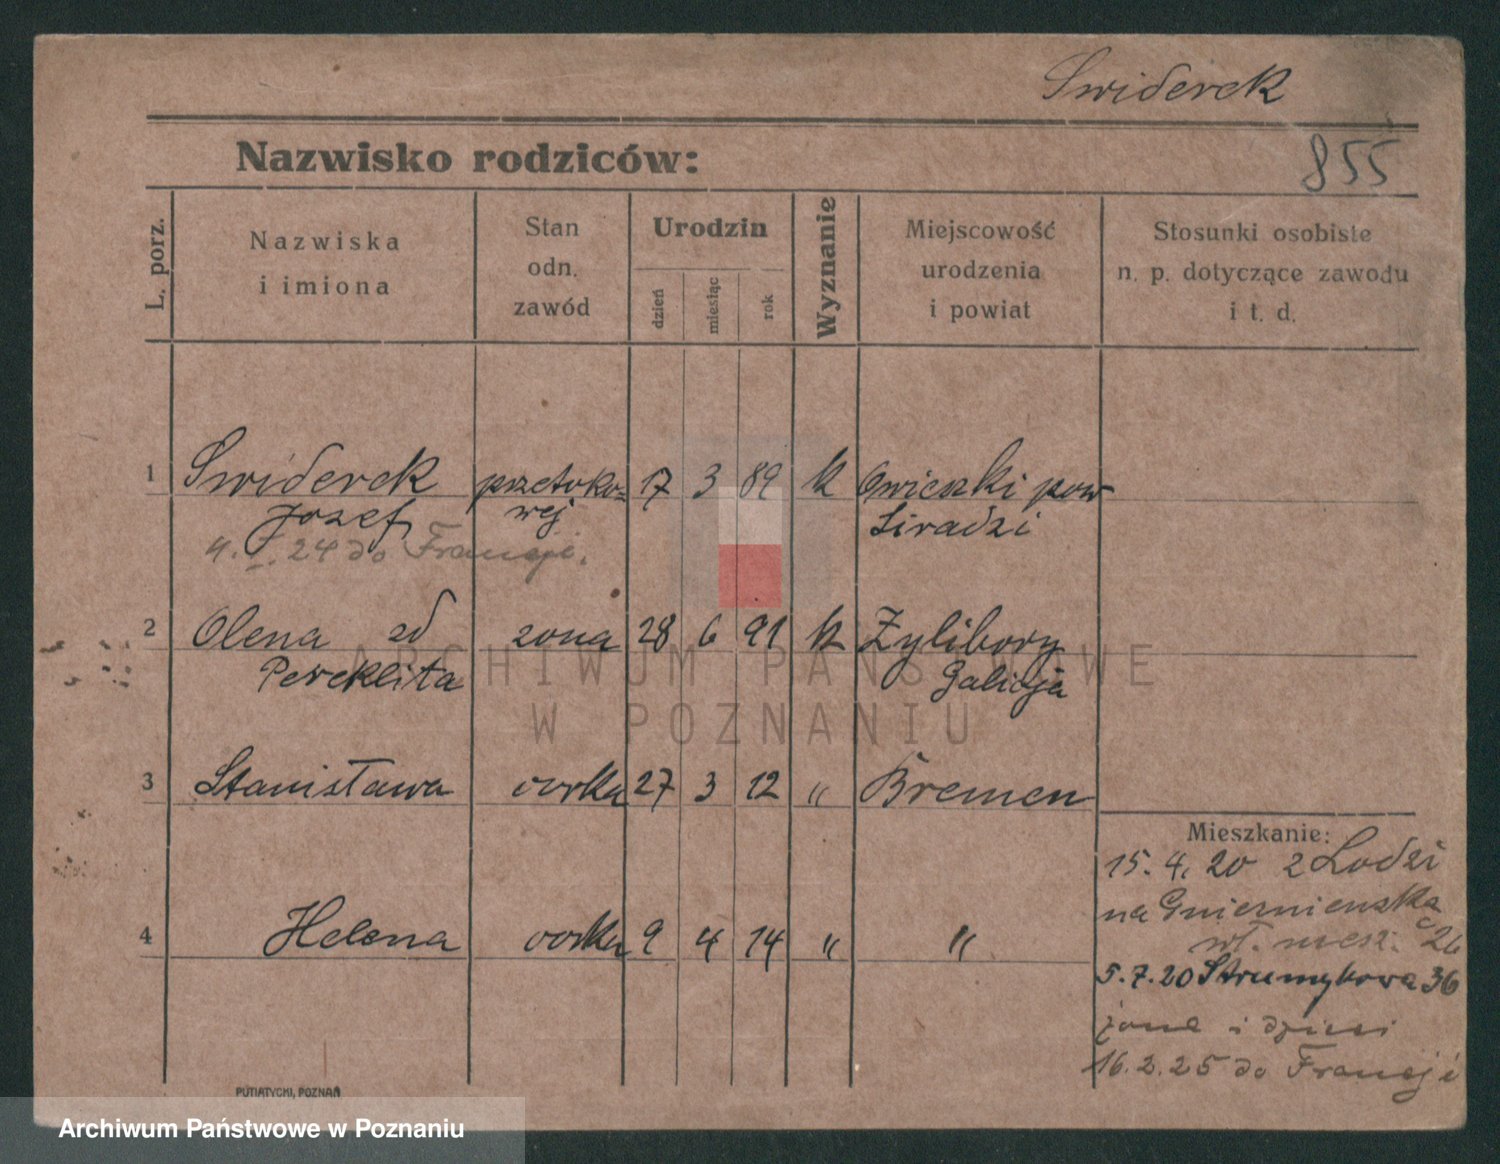 Swiderek
Nazwisko rodziców:
855
L. porz.
Nazwiska
i imiona
Stan
odn.
zawód
Urodzin
dzień
miesiąc
rok
Wyznanie
Miejscowość
urodzenia
i powiat
Stosunki osobiste
n. p. dotyczące zawodu
i t. d.
1 Swiderek przetoko= 17 3 89 k Owieszki pow
Jozef wej Siradzi
4. I. 24 do Francji.
2 Olena zd zona 28 6 91 k Zylibory
Pereklita Galicja
3 Stanisława corka 27 3 12 " Bremen
4 Helena corka 9 4 14 " "
Mieszkanie:
15. 4. 20 z Lodzi
na Gnieznienska
26
5.7.20 Strumykowa 36
żona i dzieci
16.2.25 do Francji
PUTIATYCKI, POZNAŃ
ARCHIWUM PAŃSTWOWE
W POZNANIU
Archiwum Państwowe w Poznaniu